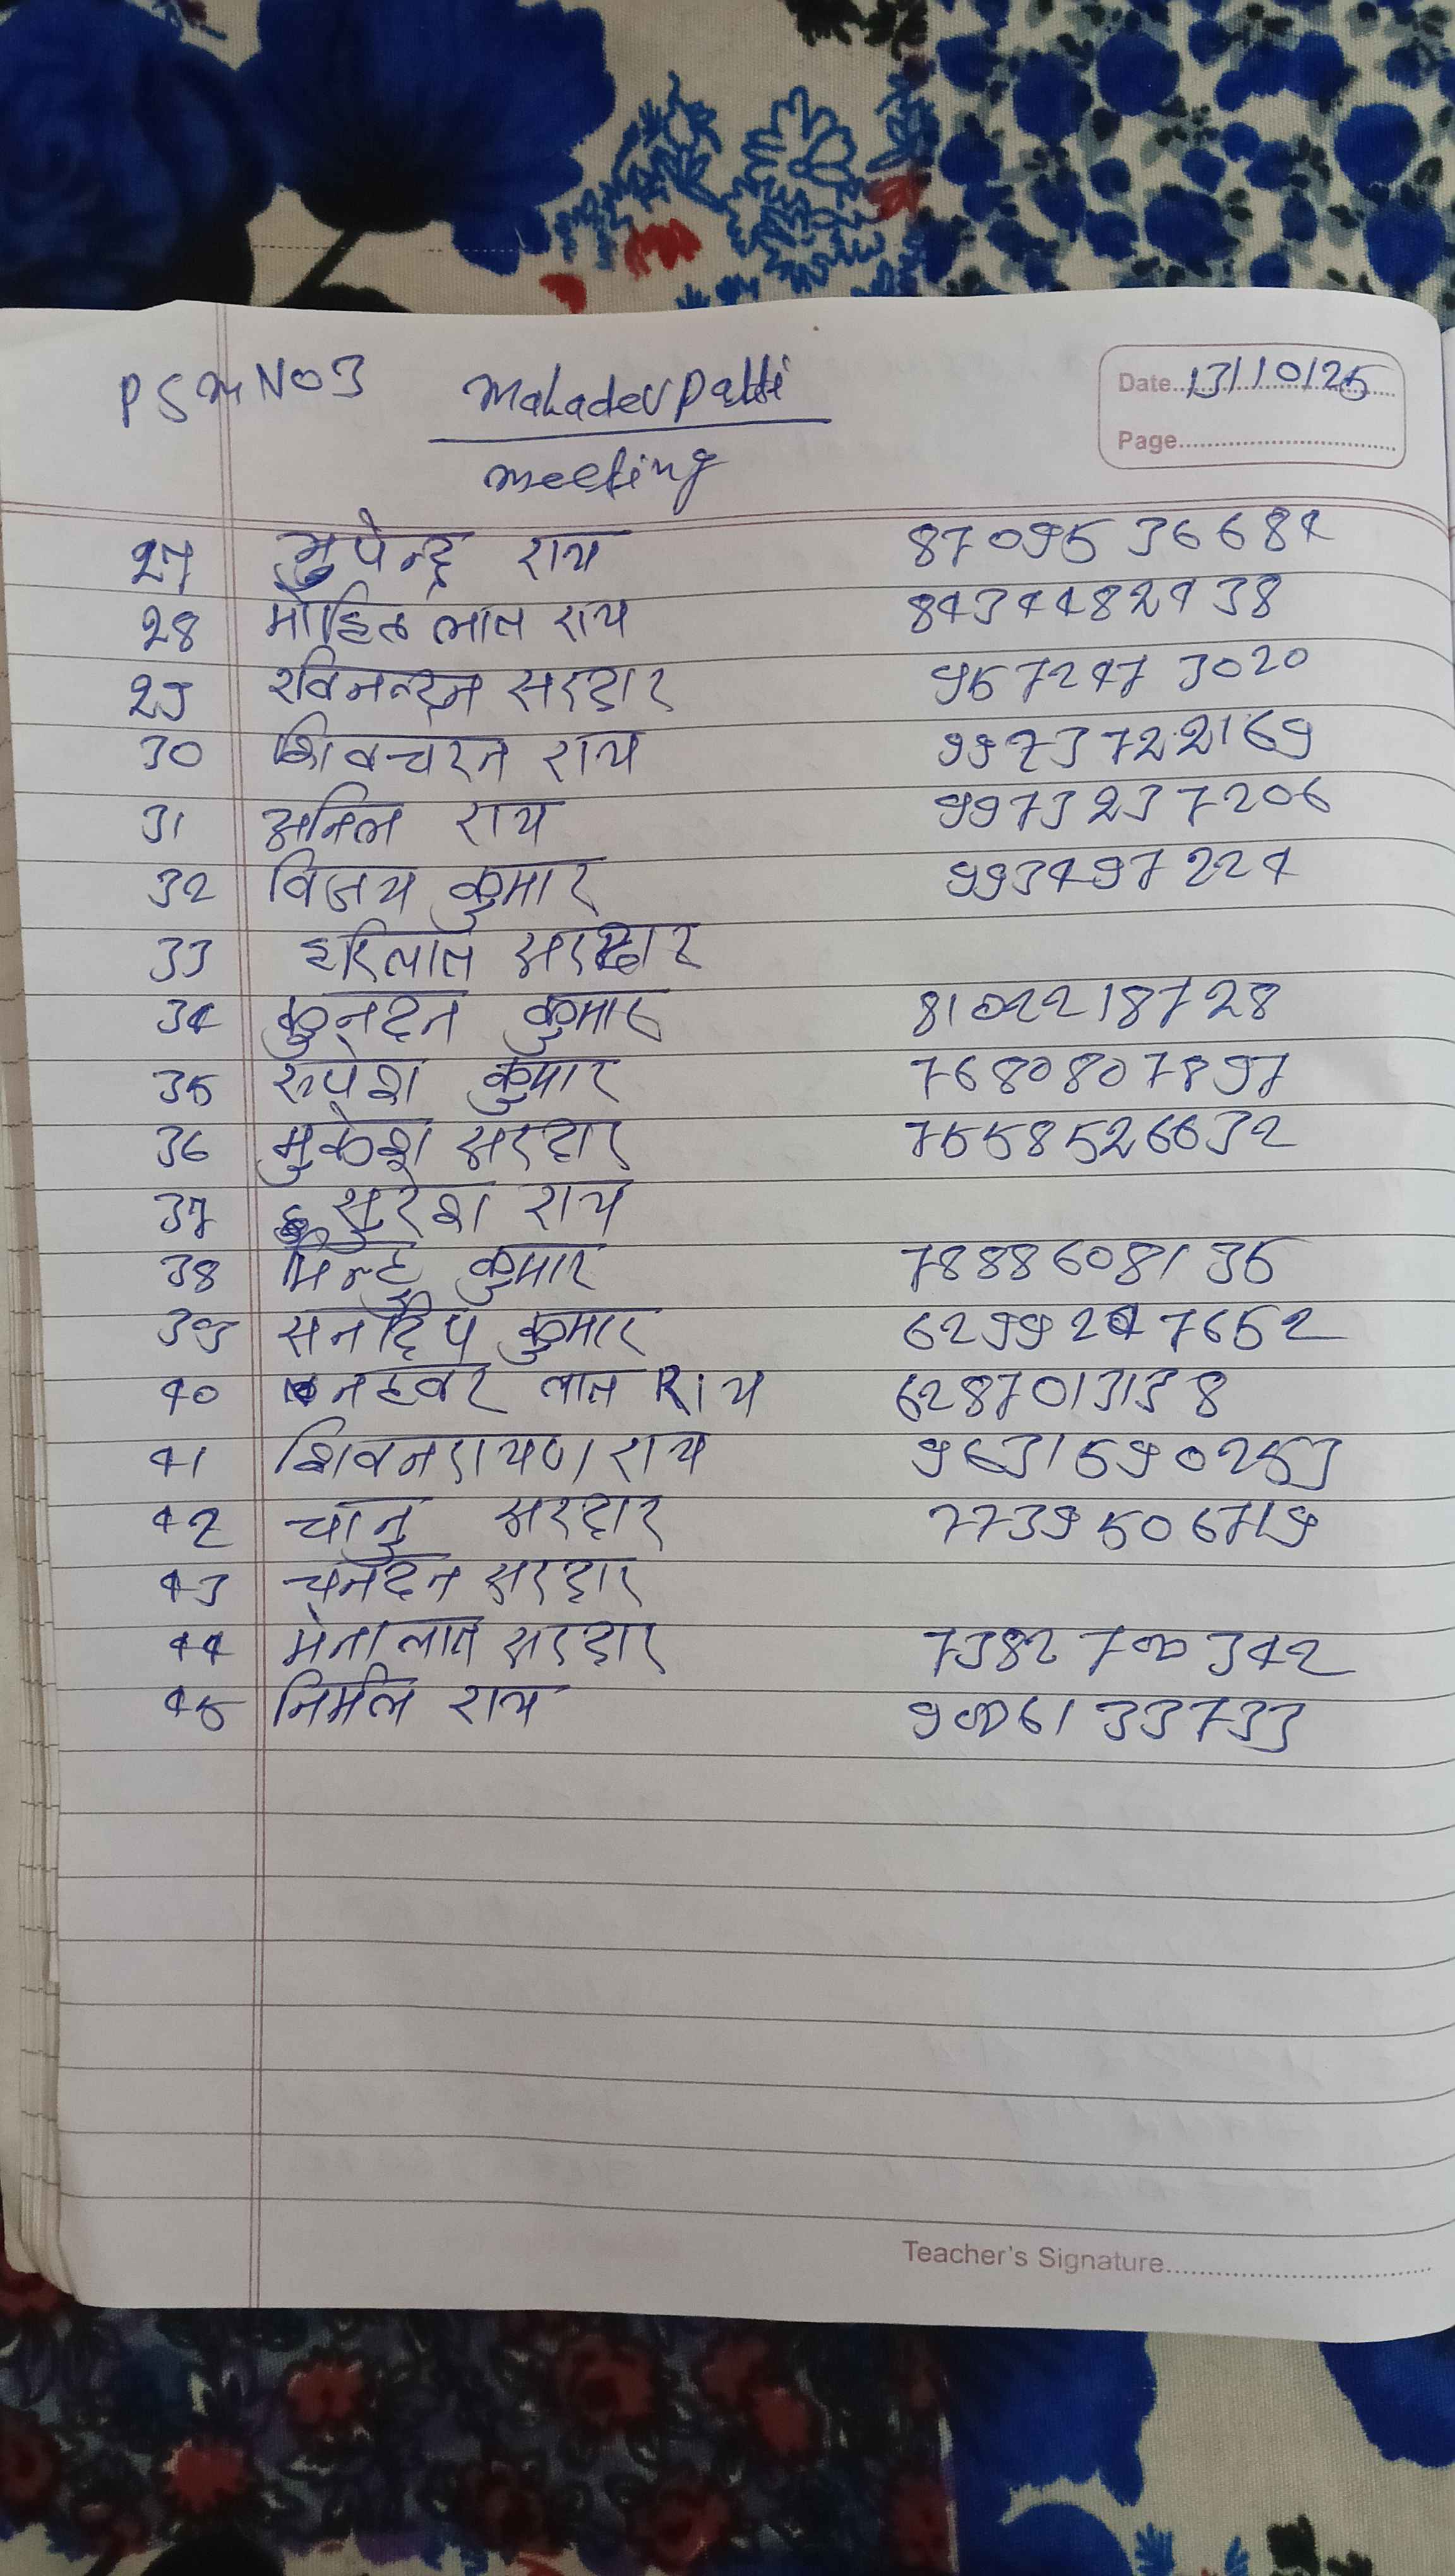 PSm No 3 Mahadevpatti Date 13/10/25
meeting Page
27 भुपेन्द्र राय 8709536684
28 मोहित लाल राय 8434482438
29 रविनन्दन सरदार 9572473020
30 शिवचरन राय 9973722169
31 अनिल राय 9973237206
32 विजय कुमार 993497224
33 हरिलाल सरदार
34 कुनदन कुमार 8102218728
35 रुपेश कुमार 7680807897
36 मुकेश सरदार 7558526632
37 सुरेश राय
38 मिन्टु कुमार 7888608135
39 सनदिप कुमार 6299247652
40 नटवर लाल राय 6287013138
41 शिवनरायण राय 9631590253
42 चानु सरदार 7739506719
43 चनदन सरदार
44 मेनालाल सरदार 7382700342
45 निर्मल राय 9006133733
Teacher's Signature